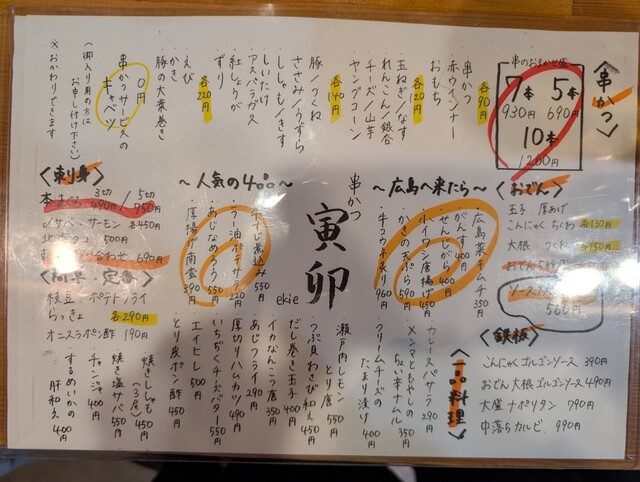 <串かつ>
串のおまかせ盛
7本 930円
5本 690円
10本 1260円
串かつ
赤ウインナー
おもち
各90円
玉ねぎ/なす
れんこん/銀杏
チーズ/山芋
ヤングコーン
各120円
豚/つくね
ささみ/うずら
ししゃも/きす
しいたけ
アスパラガス
紅しょうが
ずり
各140円
えび
かき
豚の大葉巻き
各220円
串かつサービスの
キャベツ
0円
(御入り用の方は
お申し付け下さい)
※おかわりできます
<おでん>
玉子 厚あげ
こんにゃく ちくわ
各130円
大根
各150円
560円
〜広島へ来たら〜
広島菜キムチ 350円
がんす 400円
せんじがら 400円
小イワシ唐揚げ 450円
かきの天ぷら 590円
牛コウネ炙り 960円
串かつ
寅卯
ekie
〜人気の4品〜
牛すじ煮込み 550円
ラー油ポテサラ 220円
あじなめろう 550円
厚揚げ南蛮 390円
<刺身>
3切 490円 / 5切 750円
サーモン 各450円
500円
690円
枝豆・ポテトフライ
らっきょ
各290円
オニスラポン酢 190円
<鉄板>
こんにゃくゴルゴンソース 390円
おでん大根ゴルゴンソース 490円
大盛ナポリタン 790円
中落ちカルビ 990円
<一品料理>
カレースパサラ 290円
メンマともやしの
ちょい辛ナムル 350円
クリームチーズの
たまり漬け 400円
瀬戸内レモン
とり唐 550円
つぶ貝わさび和え 450円
だし巻き玉子 400円
イカなんこつ唐 350円
あじフライ 290円
厚切りハムカツ 490円
いちぢくチーズバター 550円
エイヒレ 500円
とり皮ポン酢 450円
焼きししゃも
(3尾) 450円
焼き塩サバ 550円
チャンジャ 400円
するめいかの
肝和え 400円